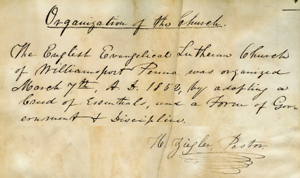 Organization of the Church.
The English Evangelical Lutheran Church
of Williamsport Penna was organized
March 7th, A. D. 1852, by adopting a
Creed of Essentials, and a Form of Gov-
ernment & Discipline.
H. Ziegler Pastor